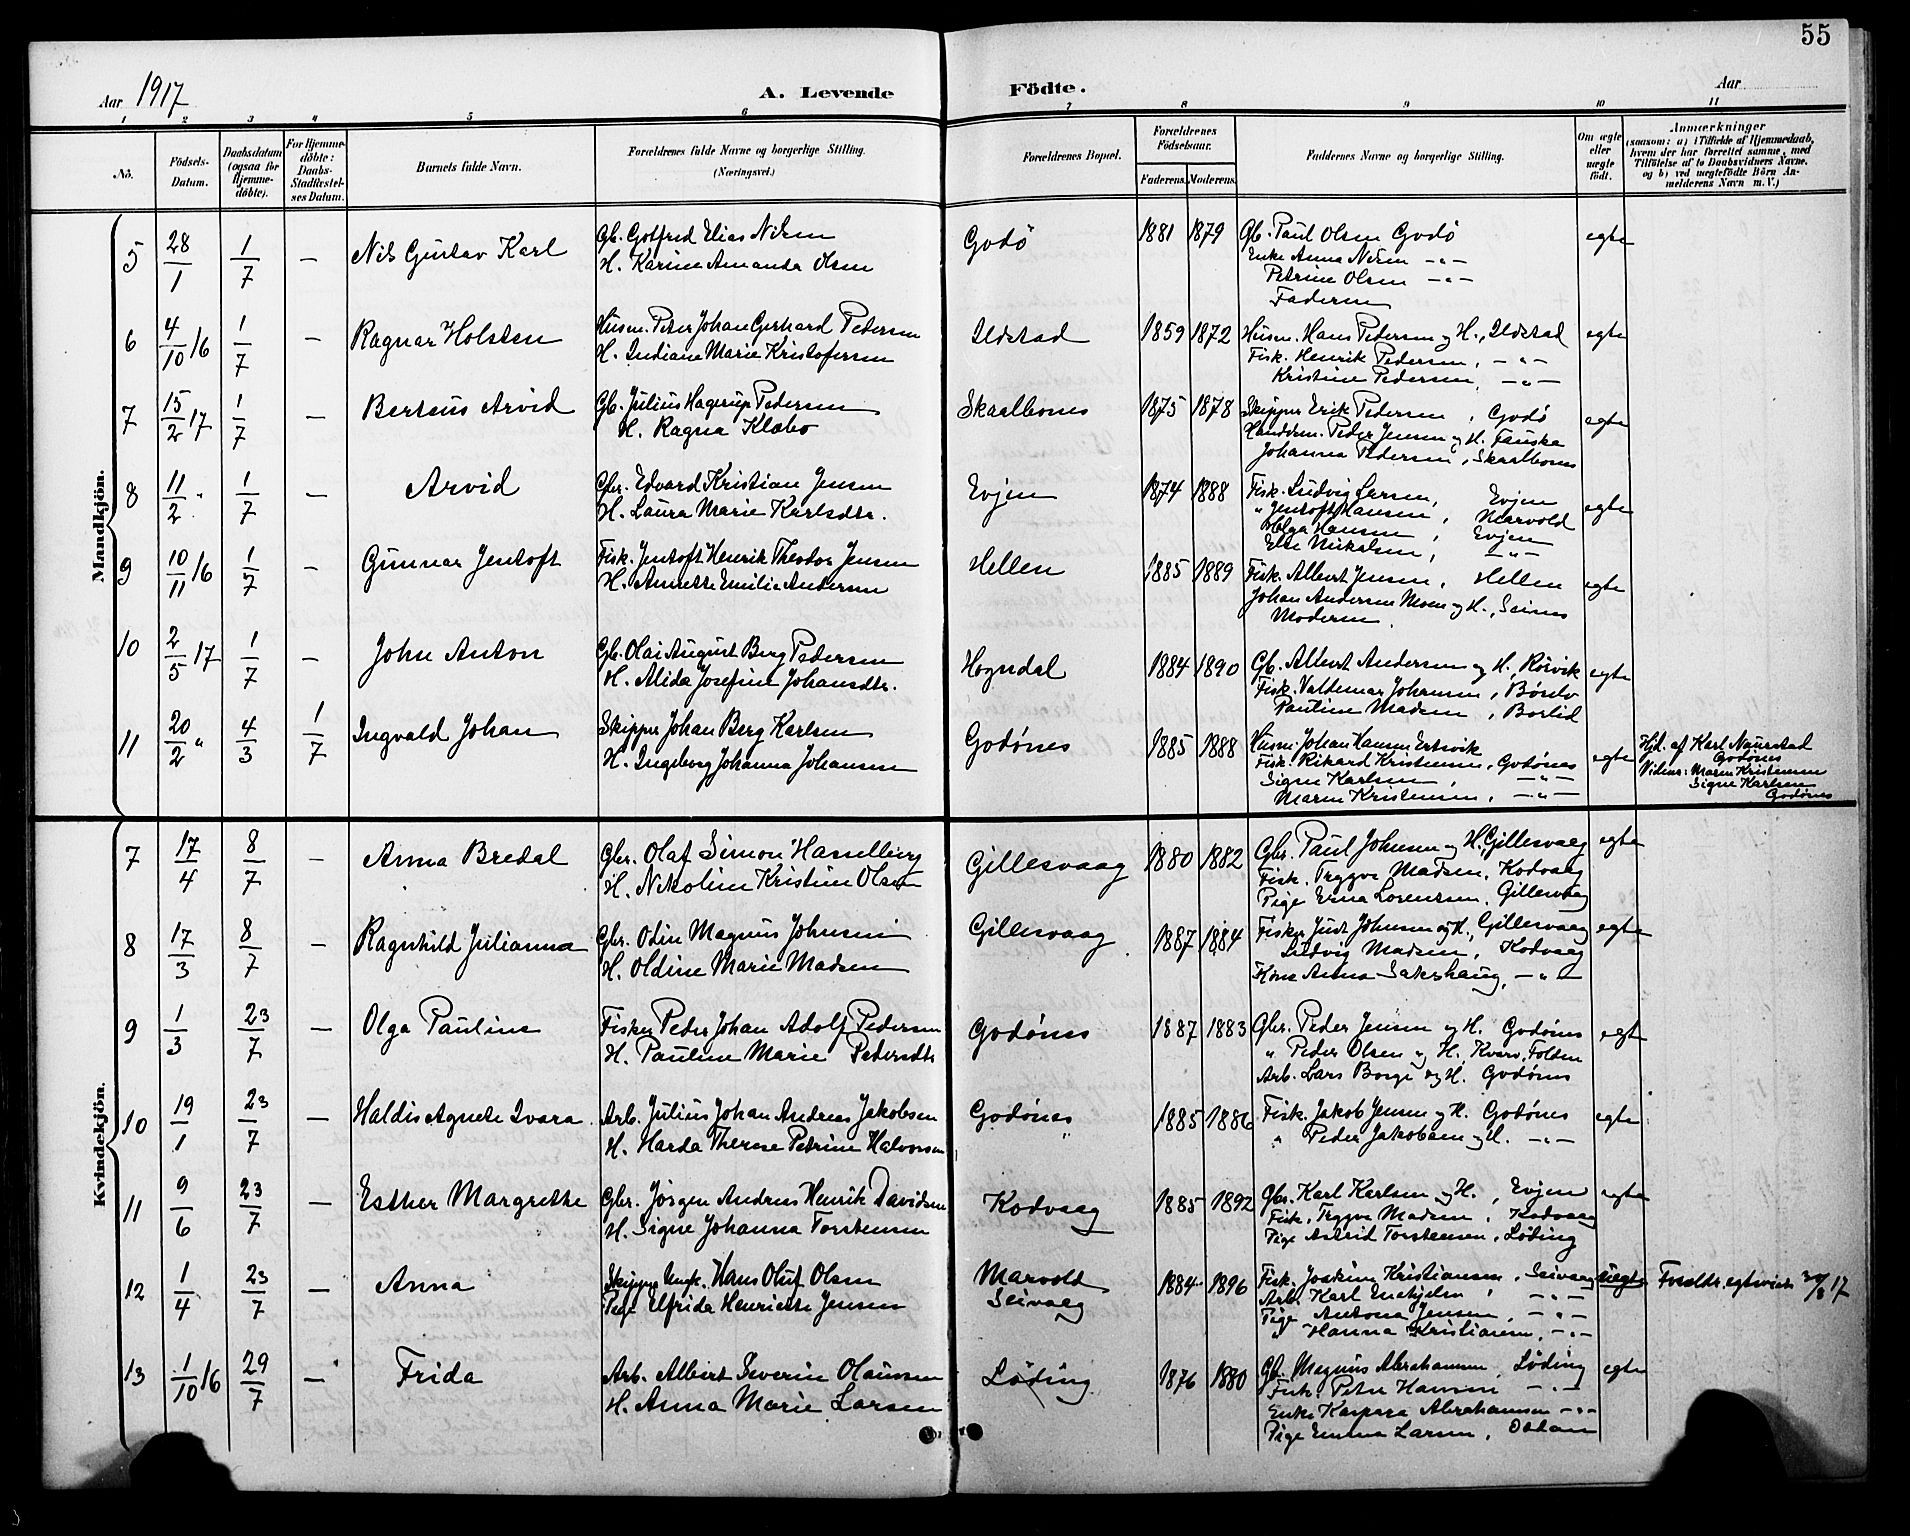 55
Aar 1917
A. Levende
Födte.
Aar
1 2 3 4 5 6 7 8 9 10 11
No.
Födsels-Datum.
Daabsdatum (ogsaa for Hjemme-døbte).
For Hjemme-døbte: Daabs-Stadfæstel-ses Datum.
Barnets fulde Navn.
Forældrenes fulde Navne og borgerlige Stilling. (Næringsvei.)
Forældrenes Bopæl.
Forældrenes Födselsaar.
Faderens. Moderens.
Faddernes Navne og borgerlige Stilling.
Om ægte eller uægte födt.
Anmærkninger
(saasom: a) i Tilfælde af Hjemmedaab, hvem der har forrettet samme, med Tilföielse af to Daabsvidners Navne. og b) ved uægtefödte Börn An-melderens Navn m. V.)
Mandkjön.
5 28/1 1/7 — Nils Gustav Karl Gb. Gotfred Elias Nilsen Godø 1881 1879 Gb. Paul Olsen Godø egte
H. Karine Amanda Olsen Enke Anna Nilsen -"-
Petrine Olsen -"-
Faderen
6 4/10 16 1/7 — Ragnar Holsten Husm. Peter Johan Gerhard Pedersen Ildstad 1859 1872 Husm. Hans Pedersen og H., Ildstad egte
H. Indiane Marie Kristofersen Fisk. Henrik Pedersen, -"-
Kristine Pedersen, -"-
7 15/2 17 1/7 — Berteus Arvid Gb. Julius Hagerup Pedersen Skaalbones 1875 1878 Skipper Erik Pedersen, Godø egte
H. Ragna Klæbo Handelsm. Peder Jensen og H. Fauske
Johanna Pedersen, Skaalbones
8 11/2 " 1/7 — Arvid Gbr. Edvard Kristian Jensen Evjen 1874 1888 Fisk. Ludvig Larsen, Evjen egte
H. Laura Marie Karlsdtr. " Jentoft Hansen, Marvold
Helga Hansen, Evjen
Else Nikolsen, -"-
9 10/11 16 1/7 — Gunnar Jentoft Fisk. Jentoft Henrik Theodor Jensen Hellen 1885 1889 Fisk. Albert Jensen, Hellen egte
H. Annette Emilie Andersen Johan Andersen Moen og H., Seines
Moderen.
10 2/5 17 1/7 — John Anton Gb. Olai August Berg Pedersen Hogndal 1884 1890 Gb. Albert Andersen og H. Rörvik egte
H. Alida Josefine Johansdtr. Fisk. Valdemar Johansen,
Pauline Madsen, Borlid
11 20/2 " 4/3 1/7 Ingvald Johan Skipper Johan Berg Karlsen Godønes 1885 1888 Husm. Johan Hansen Ertsvik egte Hjd. af Karl Naurstad
H. Ingeborg Johanna Johansen Fisk. Rikard Kristensen, Godønes Godønes
Signe Karlsen, -"- Vidner: Maren Kristensen
Maren Kristensen, -"- Signe Karlsen
Godønes
Kvindekjön.
7 17/4 8/7 — Anna Bredal Gbr. Olaf Simon Hasselberg Gillesvaag 1880 1882 Gbr. Paul Johnsen og H., Gillesvaag egte
H. Nikoline Kristine Olsen Fisk. Trygve Madsen, Kodvaag
Pige Erna Lorensen, Gillesvaag
8 17/3 8/7 — Ragnhild Julianna Gbr. Odin Magnus Johnsen Gillesvaag 1887 1884 Fisker Just Johnsen og H., Gillesvaag egte
H. Oldine Marie Madsen Ludvig Madsen, Kodvaag
Kone Anna Sakshaug, -"-
9 1/3 23/7 — Olga Pauline Fisker Peder Johan Adolf Pedersen Godønes 1887 1883 Gbr. Peder Jensen og H. Godønes egte
H. Pauline Marie Pedersdtr " Peder Olsen og H. Kvarv, Folden
Arb. Lars Borge og H. Godønes
10 19/1 23/7 — Haldis Agnete Ivara. Arb. Julius Johan Andreas Jakobsen Godønes 1885 1886 Fisk. Jakob Jensen og H. Godønes egte
H. Harda Therese Petrine Halvorsen " Peder Jakobsen og H. -"-
11 9/6 23/7 — Esther Margrethe Gbr. Jørgen Andreas Henrik Davidsen Kodvaag 1885 1892 Gbr. Karl Karlsen og H., Evjen egte
H. Signe Johanna Torstensen Fisk. Trygve Madsen, Kodvaag
Pige Astrid Torstensen, Løding
12 1/4 23/7 — Anna Skipper Ungk. Hans Oluf Olsen Marvold 1884 1896 Fisk. Joakim Kristiansen, Seivaag uegte Foreldr. egteviet 17
Pige Elfrida Henriette Jensen Seivaag Arb. Karl, -"-
Pige Antona Jensen, -"-
" Hanna Kristiansen, -"-
13 1/10 16 29/7 — Frida Arb. Albert Severin Olaussen Løding 1876 1880 Gb. Magnus Abrahamsen, Løding egte
H. Anna Marie Larsen Fisk. Peter Hansen -"-
Enke Kaspara Abrahamsen -"-
Pige Emma Larsen,